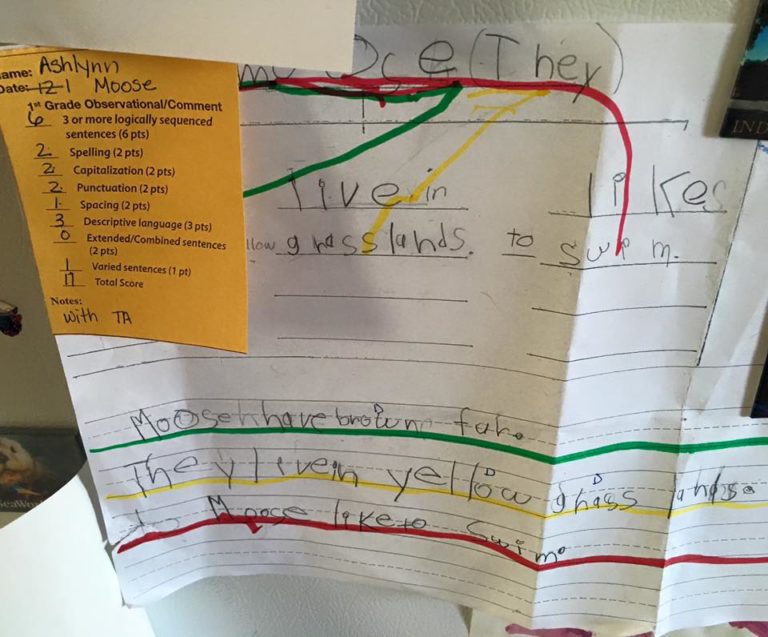 Moose (They)
Name: Ashlynn
Date: 12-1 Moose
1st Grade Observational/Comment
6 3 or more logically sequenced
sentences (6 pts)
2 Spelling (2 pts)
2 Capitalization (2 pts)
2 Punctuation (2 pts)
1 Spacing (2 pts)
3 Descriptive language (3 pts)
0 Extended/Combined sentences
(2 pts)
1 Varied sentences (1 pt)
17 Total Score
Notes:
with TA
live in
llow grasslands.
likes
to swim.
Moose have brown
They live in yellow grass lands.
Moose like to swim.
IND
SeaWor